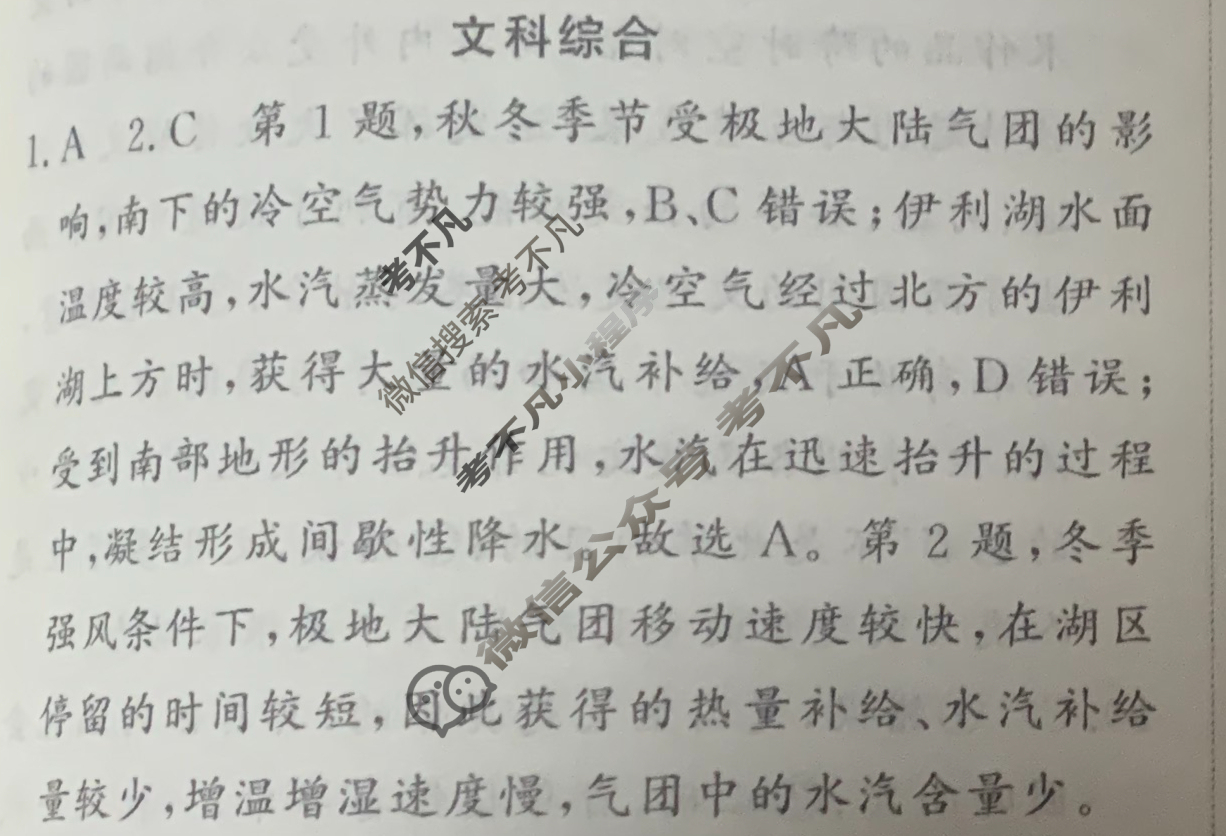 文科综合
1.A 2.C 第1题,秋冬季节受极地大陆气团的影
响,南下的冷空气势力较强,B、C错误;伊利湖水面
温度较高,水汽蒸发量大,冷空气经过北方的伊利
湖上方时,获得大量的水汽补给,A正确,D错误;
受到南部地形的抬升作用,水汽在迅速抬升的过程
中,凝结形成间歇性降水。故选A。第2题,冬季
强风条件下,极地大陆气团移动速度较快,在湖区
停留的时间较短,因此获得的热量补给、水汽补给
量较少,增温增湿速度慢,气团中的水汽含量少。
考不凡
微信搜索考不凡
考不凡小程序
微信公众号考不凡